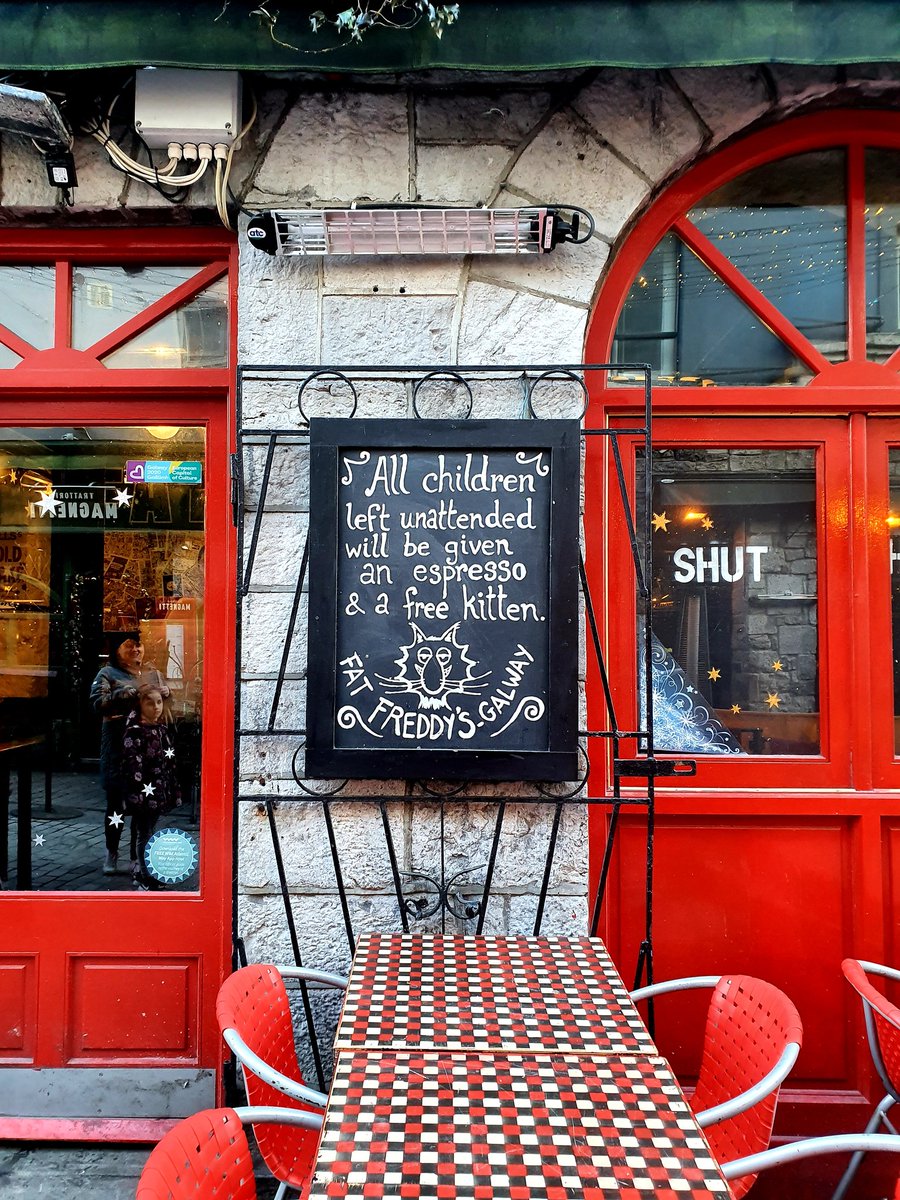 atc
Galway European
2020 Capital
Gaillimh of Culture
TRATTORI
MAGNETTI
MAGNETTI
All children
left unattended
will be given
an espresso
& a free kitten.
FAT FREDDY'S-GALWAY
SHUT